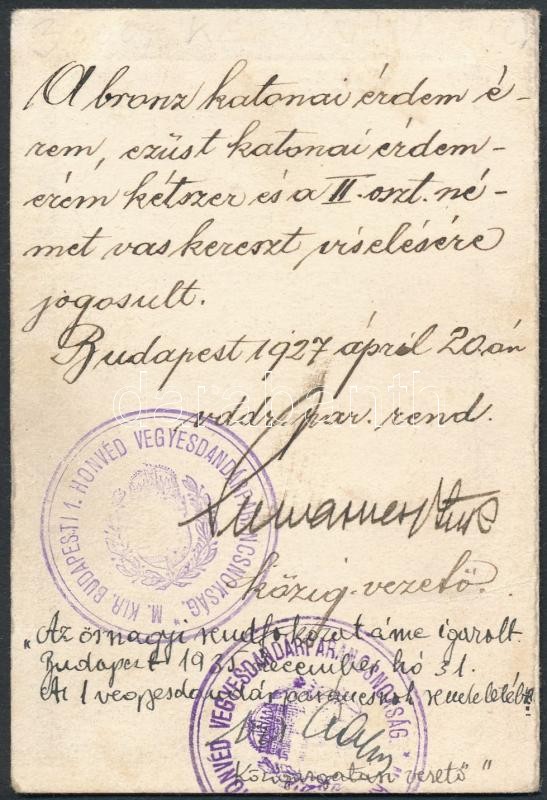 A bronz katonai érdem é-
rem, ezüst katonai érdem-
érem kétszer és a II. oszt. né-
met vaskereszt viselésére
jogosult.
Budapest 1927 április 20.-án
vddr. par. rend.
M. KIR. BUDAPESTI 1. HONVÉD VEGYESDANDÁRPARANCSNOKSÁG.
közig. vezető.
"Az őrnagyi rendfokozatáme igazolt
Budapest 1935 december hó 31.
Az 1 vegyesdandár parancsnok rendeletéből:
HONVÉD VEGYESDANDÁRPARANCSNOKSÁG
vezető"
darabanth